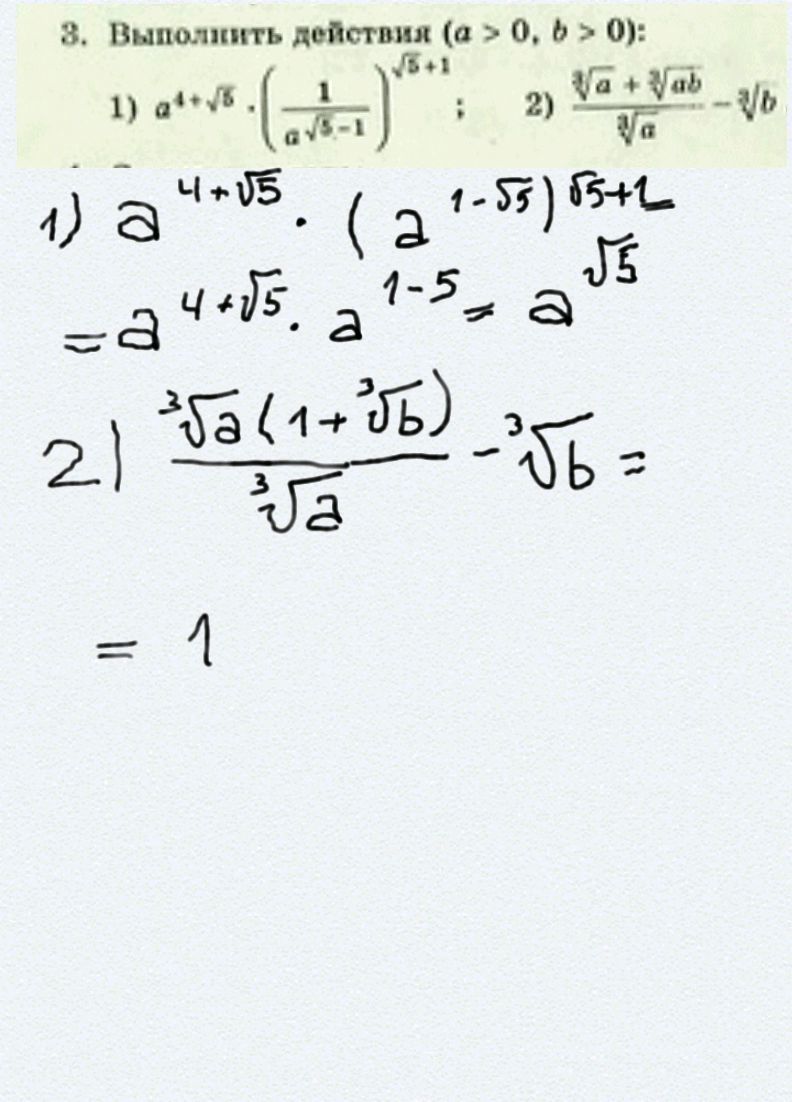 3. Выполнить действия (a > 0, b > 0):
1) a^{4+√5} · (1/a^{√5−1})^{√5+1}; 2) (∛a + ∛ab)/∛a − ∛b
1) a^{4+√5} · (a^{1-√5})^{√5+1} =
= a^{4+√5} · a^{1-5} = a^{√5}
2) ∛a(1+∛b)/∛a - ∛b =
= 1